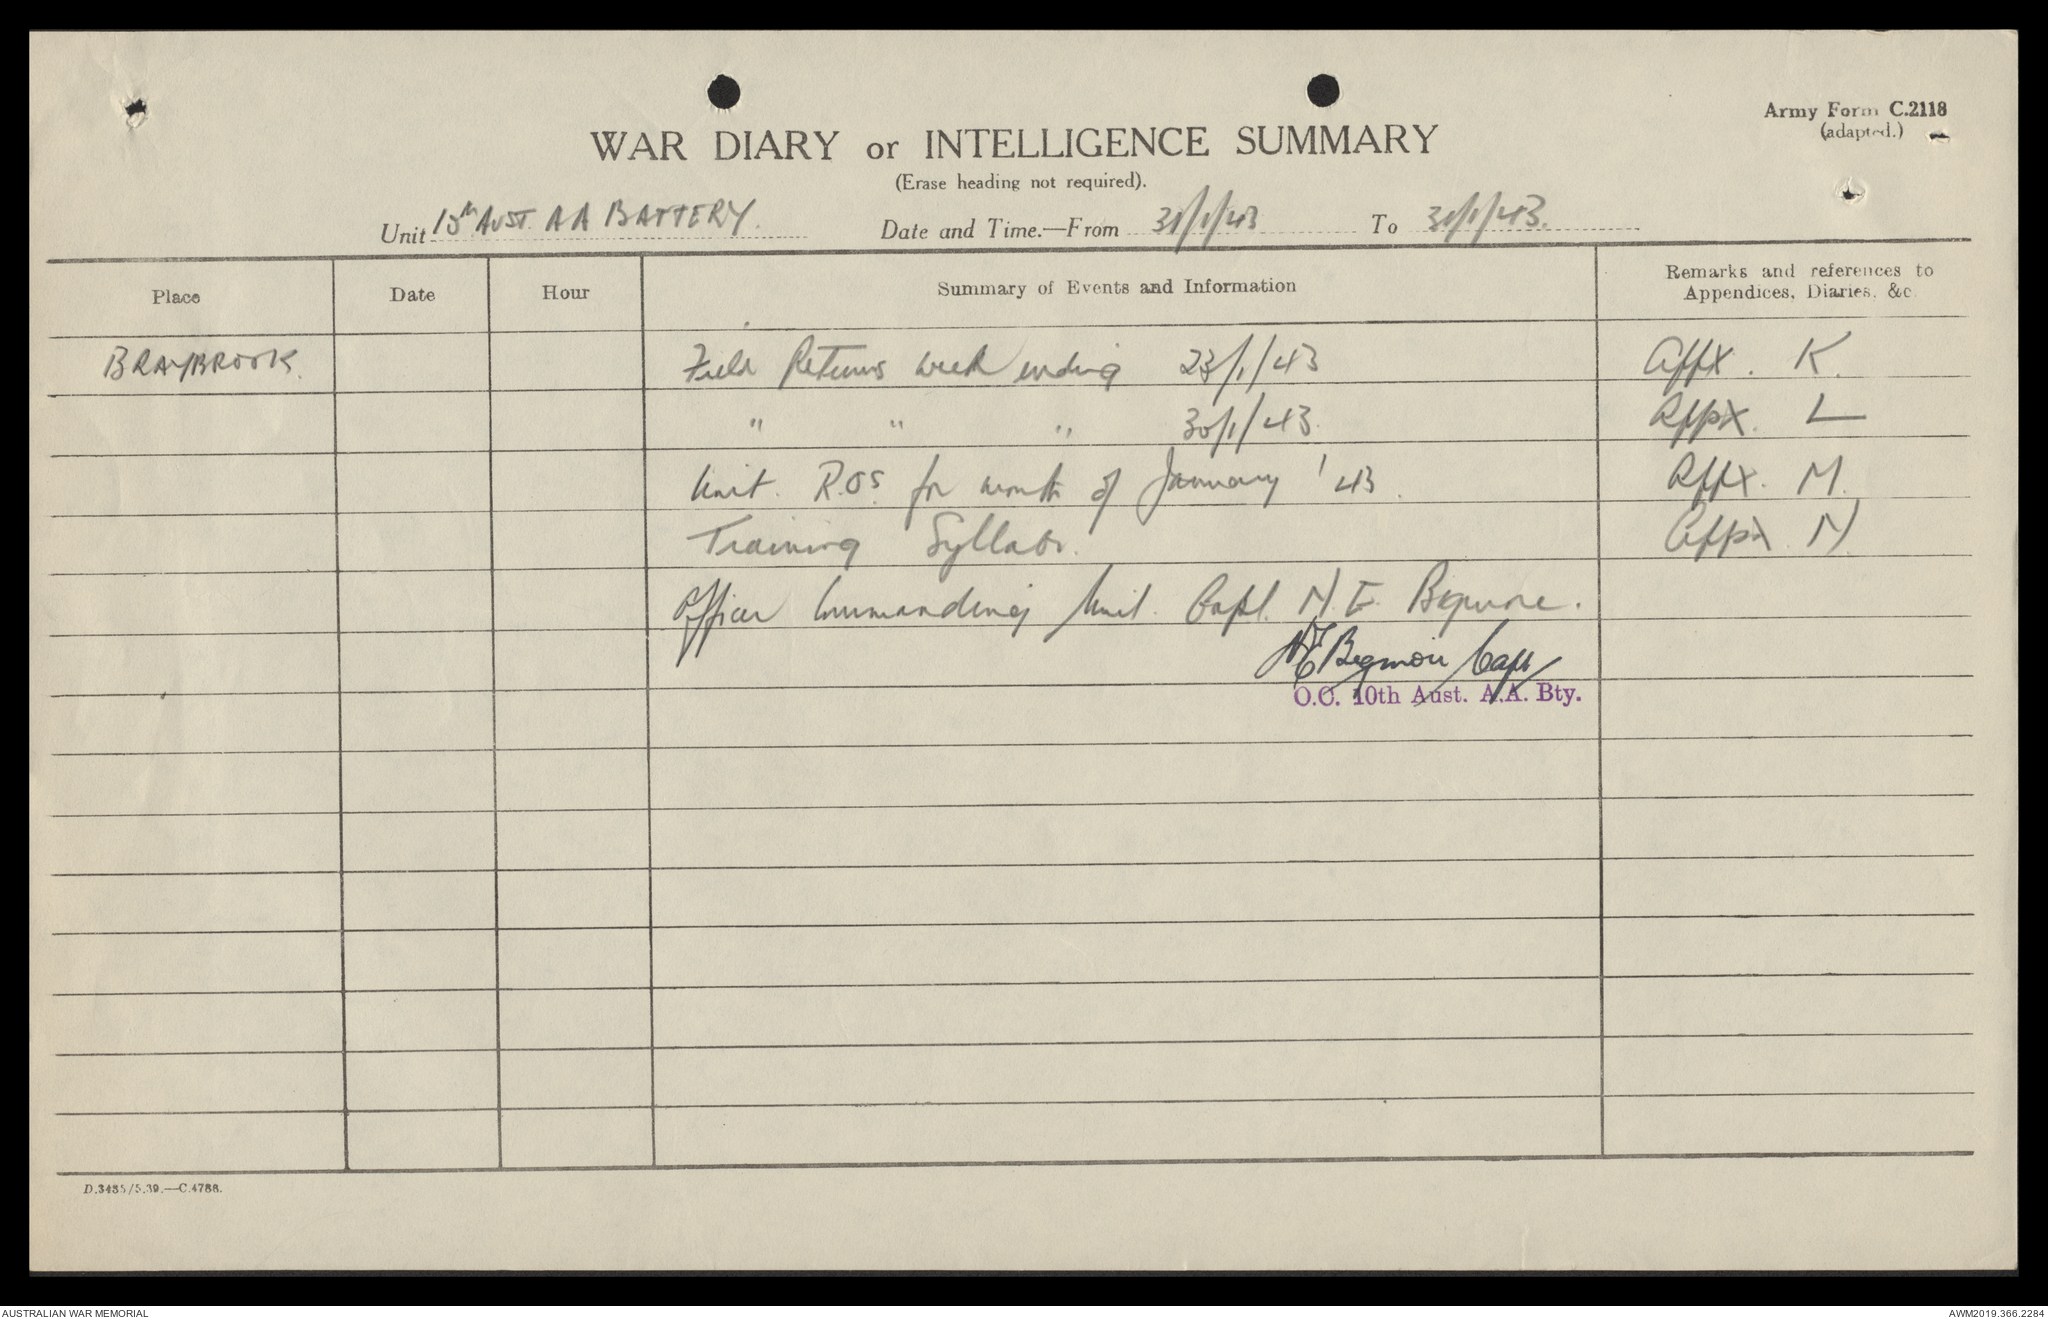 Army Form C.2118
(adapted.)
WAR DIARY or INTELLIGENCE SUMMARY
(Erase heading not required).
Unit 10th AUST. A A BATTERY. Date and Time.—From 31/1/43 To 31/1/43.
Place Date Hour Summary of Events and Information Remarks and references to
Appendices, Diaries, &c.
BRAYBROOK. Field Returns week ending 23/1/43 Appx. K.
" " " 30/1/43. Appx. L
Unit. R.Os. for month of January '43. Appx. M.
Training Syllabi. Appx N
Officer Commanding Unit. Capt. N. E.
Capt
O.C. 10th Aust. A.A. Bty.
D.3485/5.39.—C.4788.
AUSTRALIAN WAR MEMORIAL AWM2019.366.2284